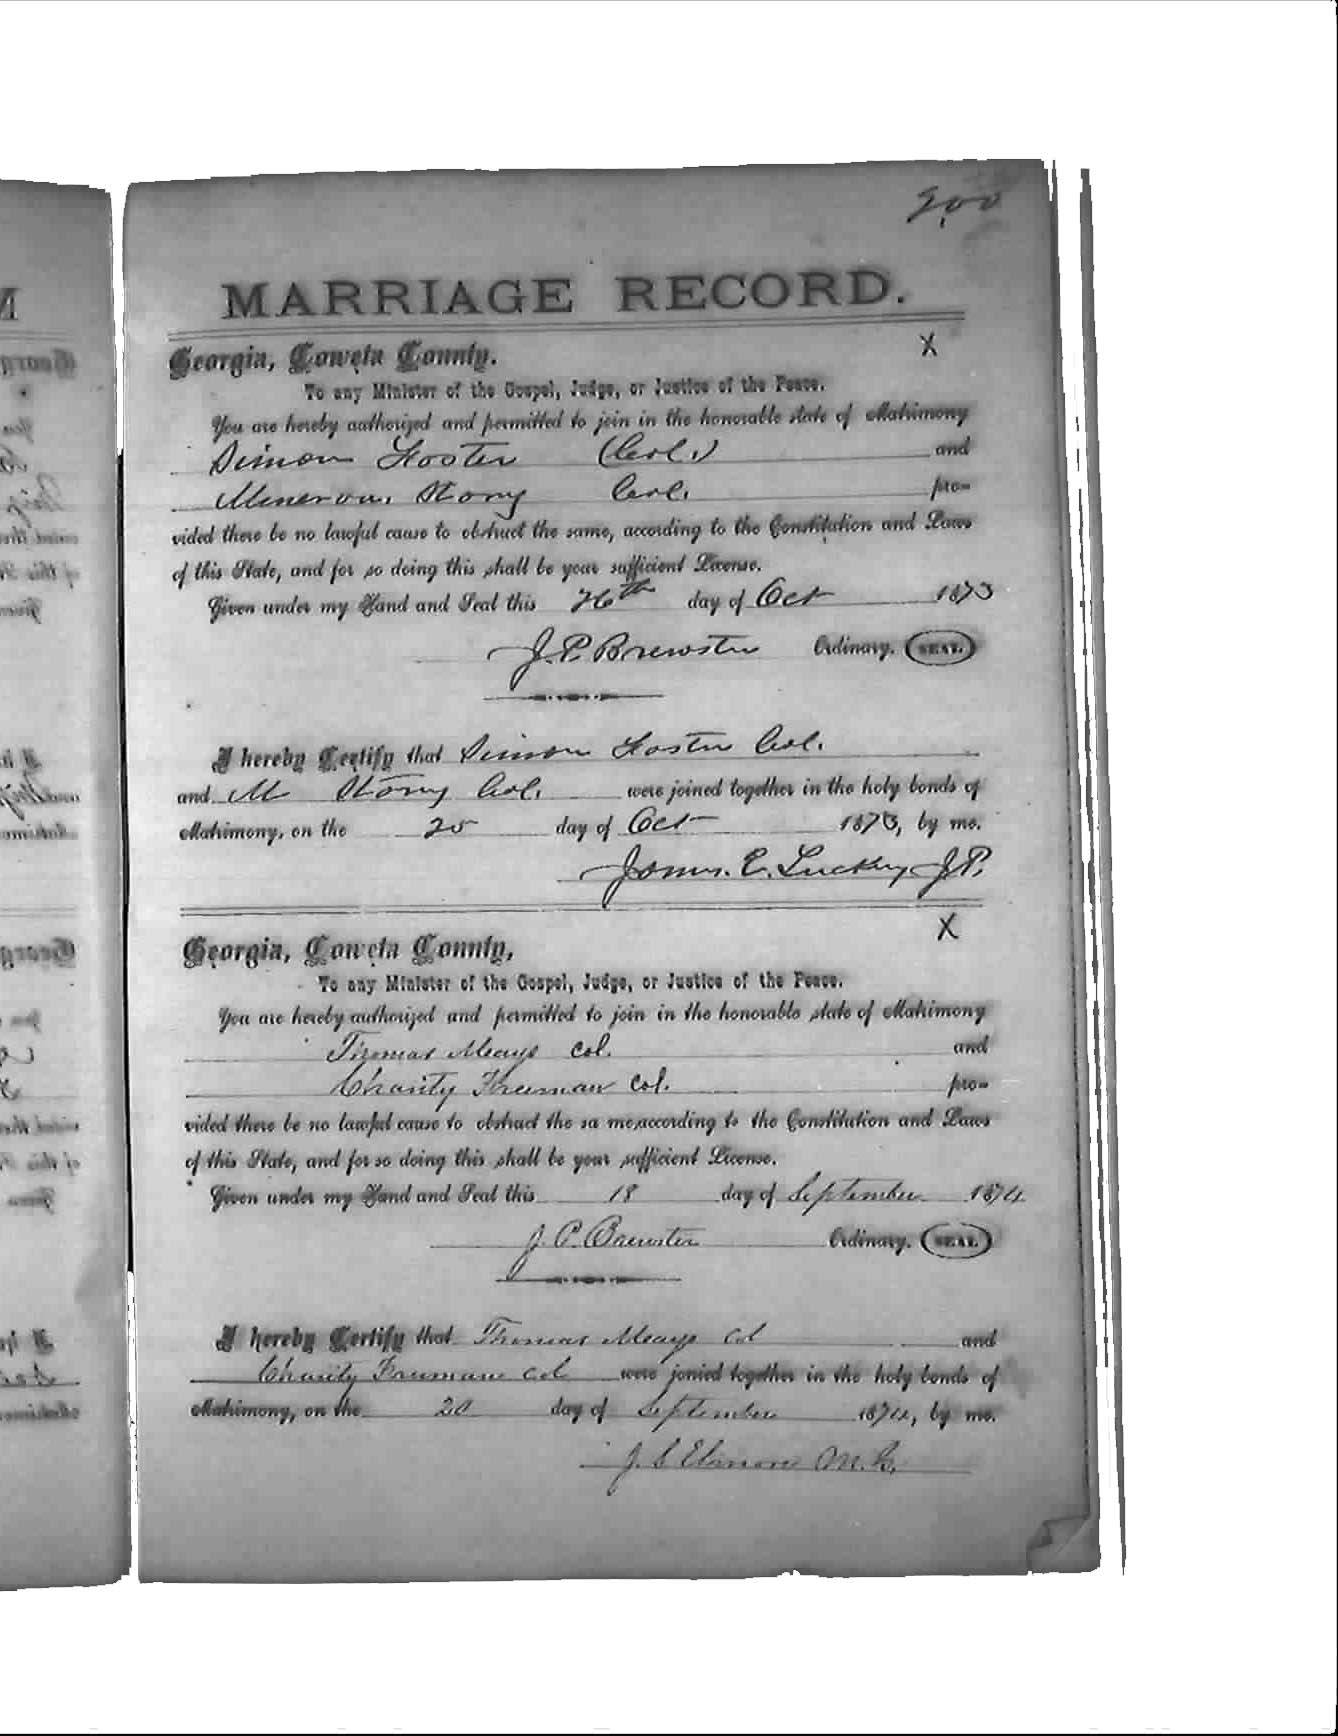 200
MARRIAGE RECORD.
X
Georgia, Coweta County.
To any Minister of the Gospel, Judge, or Justice of the Peace.
You are hereby authorized and permitted to join in the honorable state of Matrimony
Simon Foster (Col.) and
Minerva. Story Col. pro-
vided there be no lawful cause to obstruct the same, according to the Constitution and Laws
of this State, and for so doing this shall be your sufficient License.
Given under my Hand and Seal this 26th day of Oct 1873
J. P. Brewster Ordinary. SEAL
I hereby Certify that Simon Foster Col.
and M Story Col. were joined together in the holy bonds of
Matrimony, on the day of Oct 1873, by me.
E. Luckey J.P.
X
Georgia, Coweta County,
To any Minister of the Gospel, Judge, or Justice of the Peace.
You are hereby authorized and permitted to join in the honorable state of Matrimony
Thomas Meays col. and
Charity Freeman col. pro-
vided there be no lawful cause to obstruct the sa me,according to the Constitution and Laws
of this State, and for so doing this shall be your sufficient License.
Given under my Hand and Seal this 18 day of September 1874
J. P. Brewster Ordinary. SEAL
I hereby Certify that Thomas Meays col and
Charity Freeman col were jonied together in the holy bonds of
Matrimony, on the 20 day of September 1874, by me.
J. S. M.G.